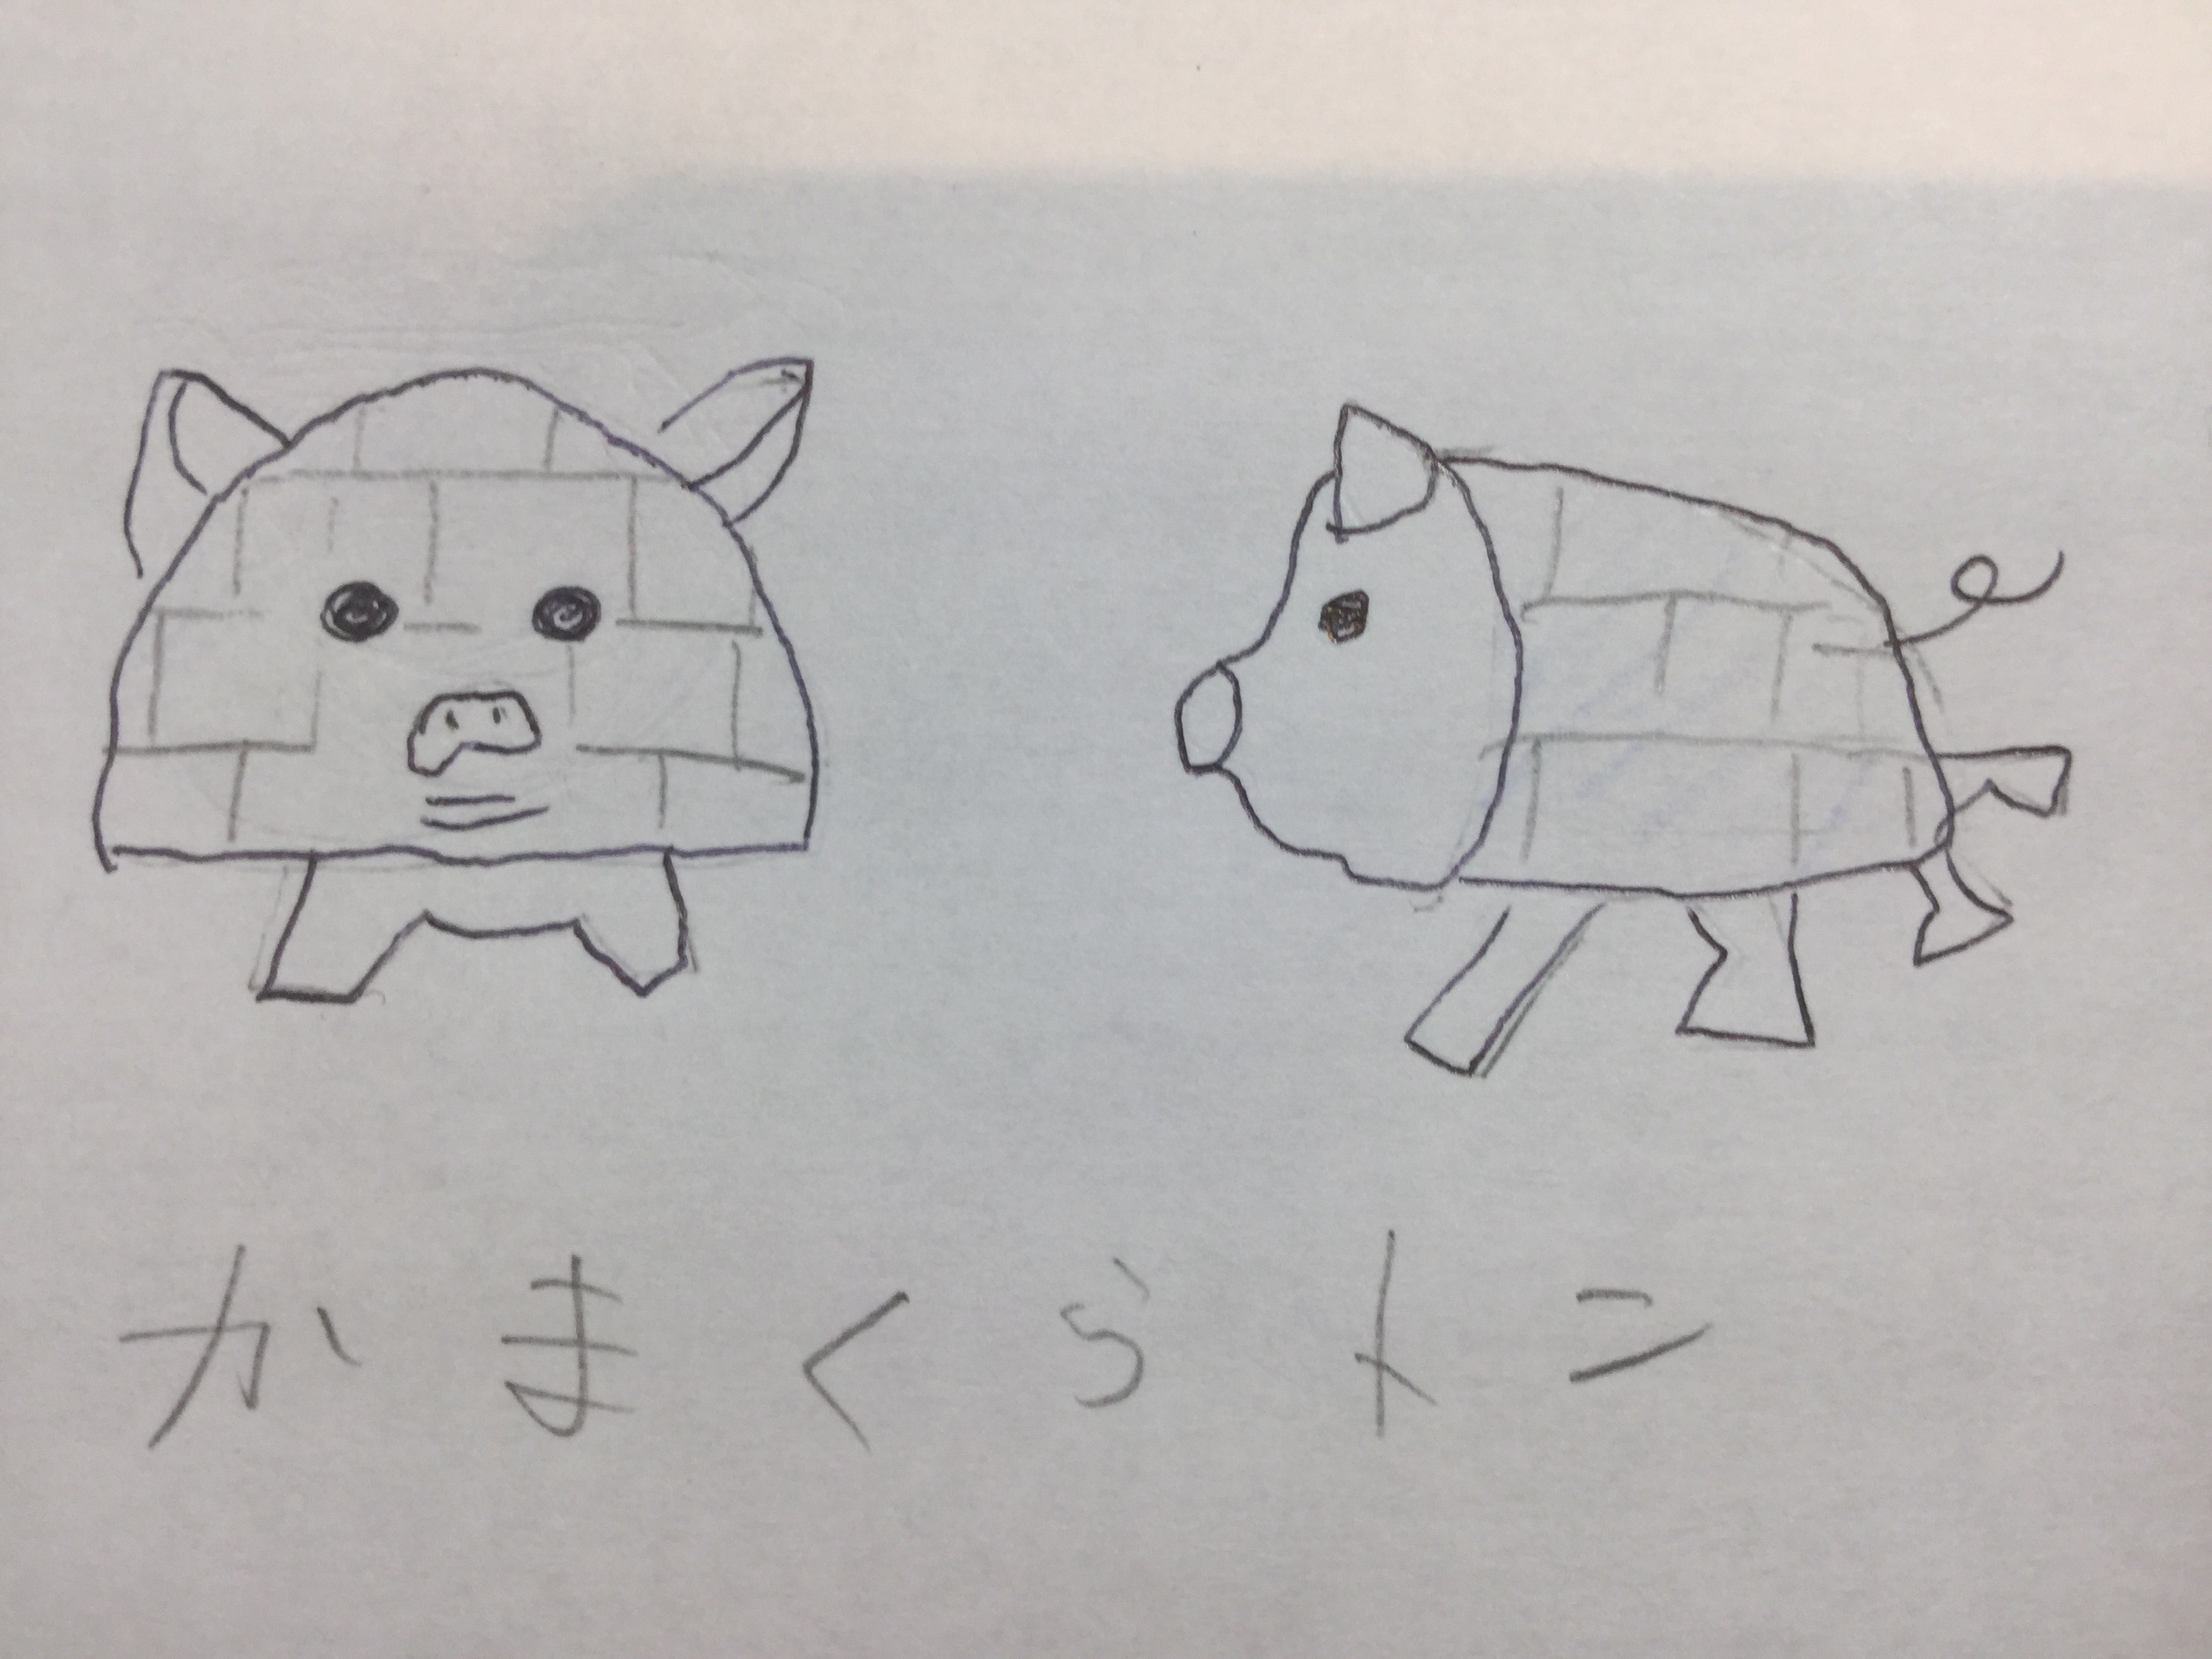 かまくらトン